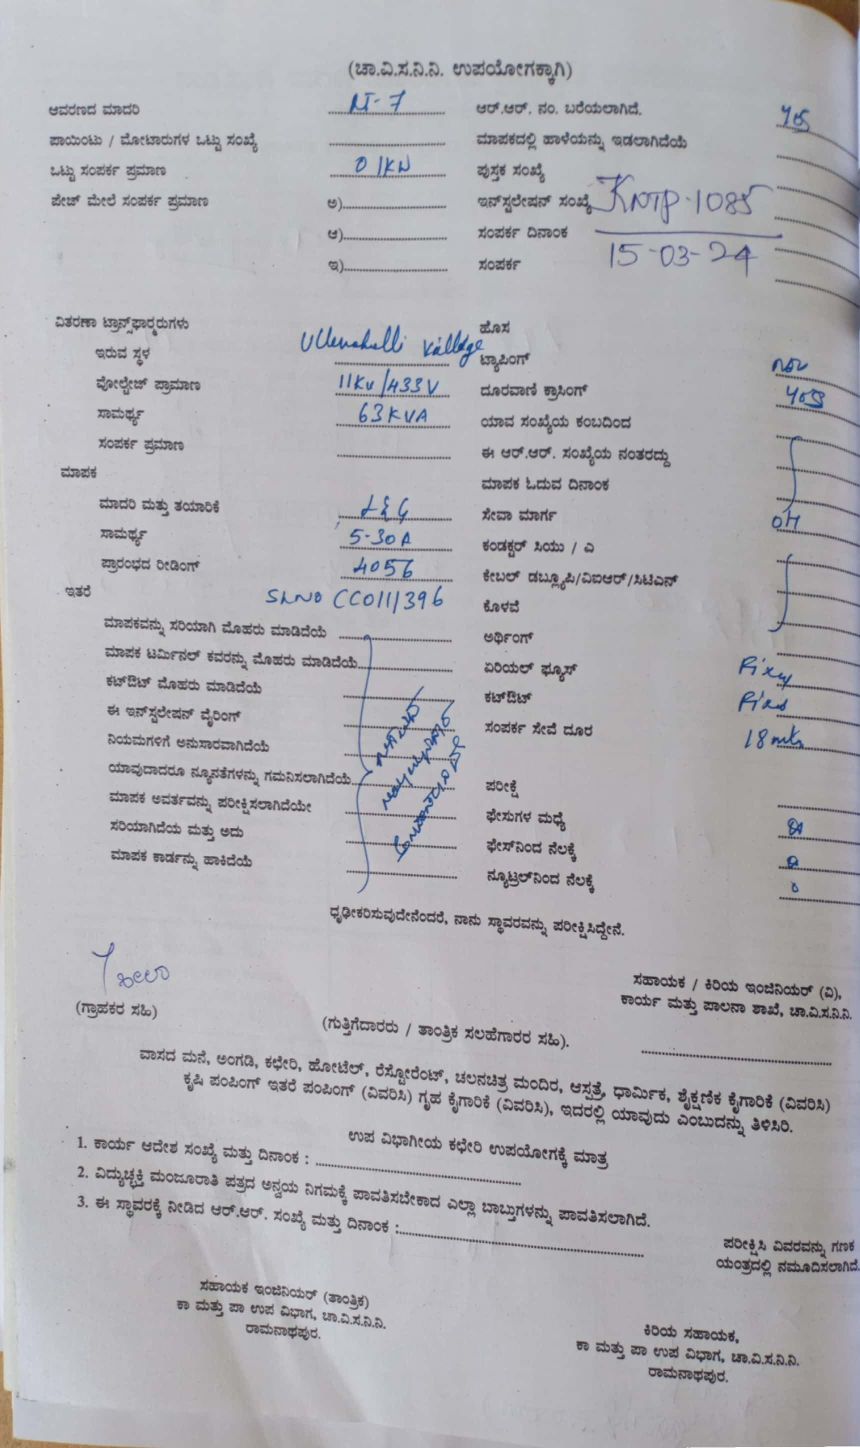 (ಚಾ.ವಿ.ಸ.ನಿ.ನಿ. ಉಪಯೋಗಕ್ಕಾಗಿ)
ಆವರಣದ ಮಾದರಿ LT-7 ಆರ್.ಆರ್. ನಂ. ಬರೆಯಲಾಗಿದೆ. yes
ಪಾಯಿಂಟು / ಮೋಟಾರುಗಳ ಒಟ್ಟು ಸಂಖ್ಯೆ ಮಾಪಕದಲ್ಲಿ ಹಾಳೆಯನ್ನು ಇಡಲಾಗಿದೆಯೆ
ಒಟ್ಟು ಸಂಪರ್ಕ ಪ್ರಮಾಣ 01KW ಪುಸ್ತಕ ಸಂಖ್ಯೆ
ಪೇಜ್ ಮೇಲೆ ಸಂಪರ್ಕ ಪ್ರಮಾಣ ಅ) ಇನ್‌ಸ್ಟಲೇಷನ್ ಸಂಖ್ಯೆ KNTP-1085
ಆ) ಸಂಪರ್ಕ ದಿನಾಂಕ 15-03-24
ಇ) ಸಂಪರ್ಕ
ವಿತರಣಾ ಟ್ರಾನ್ಸ್‌ಫಾರ್ಮರುಗಳು ಹೊಸ
ಇರುವ ಸ್ಥಳ Village ಟ್ಯಾಪಿಂಗ್
ವೋಲ್ಟೇಜ್ ಪ್ರಾಮಾಣ 11KV/433V ದೂರವಾಣಿ ಕ್ರಾಸಿಂಗ್
ಸಾಮರ್ಥ್ಯ 63KVA ಯಾವ ಸಂಖ್ಯೆಯ ಕಂಬದಿಂದ
ಸಂಪರ್ಕ ಪ್ರಮಾಣ ಈ ಆರ್.ಆರ್. ಸಂಖ್ಯೆಯ ನಂತರದ್ದು
ಮಾಪಕ ಮಾಪಕ ಓದುವ ದಿನಾಂಕ
ಮಾದರಿ ಮತ್ತು ತಯಾರಿಕೆ L&G ಸೇವಾ ಮಾರ್ಗ OH
ಸಾಮರ್ಥ್ಯ 5-30A ಕಂಡಕ್ಟರ್ ಸಿಯು / ಎ
ಪ್ರಾರಂಭದ ರೀಡಿಂಗ್ 4056 ಕೇಬಲ್ ಡಬ್ಲ್ಯೂಪಿ/ವಿಐಆರ್/ಸಿಟಿಎನ್
ಇತರೆ SLNO CC0111396 ಕೊಳವೆ
ಮಾಪಕವನ್ನು ಸರಿಯಾಗಿ ಮೊಹರು ಮಾಡಿದೆಯೆ ಅರ್ಥಿಂಗ್
ಮಾಪಕ ಟರ್ಮಿನಲ್ ಕವರನ್ನು ಮೊಹರು ಮಾಡಿದೆಯೆ ಏರಿಯಲ್ ಫ್ಯೂಸ್
ಕಟ್‌ಔಟ್ ಮೊಹರು ಮಾಡಿದೆಯೆ ಕಟ್‌ಔಟ್
ಈ ಇನ್‌ಸ್ಟಲೇಷನ್ ವೈರಿಂಗ್ ಸಂಪರ್ಕ ಸೇವೆ ದೂರ 18mts
ನಿಯಮಗಳಿಗೆ ಅನುಸಾರವಾಗಿದೆಯೆ
ಯಾವುದಾದರೂ ನ್ಯೂನತೆಗಳನ್ನು ಗಮನಿಸಲಾಗಿದೆಯೆ ಪರೀಕ್ಷೆ
ಮಾಪಕ ಅವರ್ತವನ್ನು ಪರೀಕ್ಷಿಸಲಾಗಿದೆಯೇ ಫೇಸುಗಳ ಮಧ್ಯೆ
ಸರಿಯಾಗಿದೆಯ ಮತ್ತು ಅದು ಫೇಸ್‌ನಿಂದ ನೆಲಕ್ಕೆ
ಮಾಪಕ ಕಾರ್ಡನ್ನು ಹಾಕಿದೆಯೆ ನ್ಯೂಟ್ರಲ್‌ನಿಂದ ನೆಲಕ್ಕೆ
ಧೃಢೀಕರಿಸುವುದೇನೆಂದರೆ, ನಾನು ಸ್ಥಾವರವನ್ನು ಪರೀಕ್ಷಿಸಿದ್ದೇನೆ.
ಸಹಾಯಕ / ಕಿರಿಯ ಇಂಜಿನಿಯರ್ (ವಿ),
(ಗ್ರಾಹಕರ ಸಹಿ) ಕಾರ್ಯ ಮತ್ತು ಪಾಲನಾ ಶಾಖೆ, ಚಾ.ವಿ.ಸ.ನಿ.ನಿ.
(ಗುತ್ತಿಗೆದಾರರು / ತಾಂತ್ರಿಕ ಸಲಹೆಗಾರರ ಸಹಿ).
ವಾಸದ ಮನೆ, ಅಂಗಡಿ, ಕಛೇರಿ, ಹೋಟೆಲ್, ರೆಸ್ಟೋರೆಂಟ್, ಚಲನಚಿತ್ರ ಮಂದಿರ, ಆಸ್ಪತ್ರೆ, ಧಾರ್ಮಿಕ, ಶೈಕ್ಷಣಿಕ ಕೈಗಾರಿಕೆ (ವಿವರಿಸಿ)
ಕೃಷಿ ಪಂಪಿಂಗ್ ಇತರೆ ಪಂಪಿಂಗ್ (ವಿವರಿಸಿ) ಗೃಹ ಕೈಗಾರಿಕೆ (ವಿವರಿಸಿ), ಇದರಲ್ಲಿ ಯಾವುದು ಎಂಬುದನ್ನು ತಿಳಿಸಿರಿ.
ಉಪ ವಿಭಾಗೀಯ ಕಛೇರಿ ಉಪಯೋಗಕ್ಕೆ ಮಾತ್ರ
1. ಕಾರ್ಯ ಆದೇಶ ಸಂಖ್ಯೆ ಮತ್ತು ದಿನಾಂಕ :
2. ವಿದ್ಯುಚ್ಛಕ್ತಿ ಮಂಜೂರಾತಿ ಪತ್ರದ ಅನ್ವಯ ನಿಗಮಕ್ಕೆ ಪಾವತಿಸಬೇಕಾದ ಎಲ್ಲಾ ಬಾಬ್ತುಗಳನ್ನು ಪಾವತಿಸಲಾಗಿದೆ.
3. ಈ ಸ್ಥಾವರಕ್ಕೆ ನೀಡಿದ ಆರ್.ಆರ್. ಸಂಖ್ಯೆ ಮತ್ತು ದಿನಾಂಕ :
ಪರೀಕ್ಷಿಸಿ ವಿವರವನ್ನು ಗಣಕ
ಯಂತ್ರದಲ್ಲಿ ನಮೂದಿಸಲಾಗಿದೆ
ಸಹಾಯಕ ಇಂಜಿನಿಯರ್ (ತಾಂತ್ರಿಕ)
ಕಾ ಮತ್ತು ಪಾ ಉಪ ವಿಭಾಗ, ಚಾ.ವಿ.ಸ.ನಿ.ನಿ.
ರಾಮನಾಥಪುರ.
ಕಿರಿಯ ಸಹಾಯಕ,
ಕಾ ಮತ್ತು ಪಾ ಉಪ ವಿಭಾಗ, ಚಾ.ವಿ.ಸ.ನಿ.ನಿ.
ರಾಮನಾಥಪುರ.